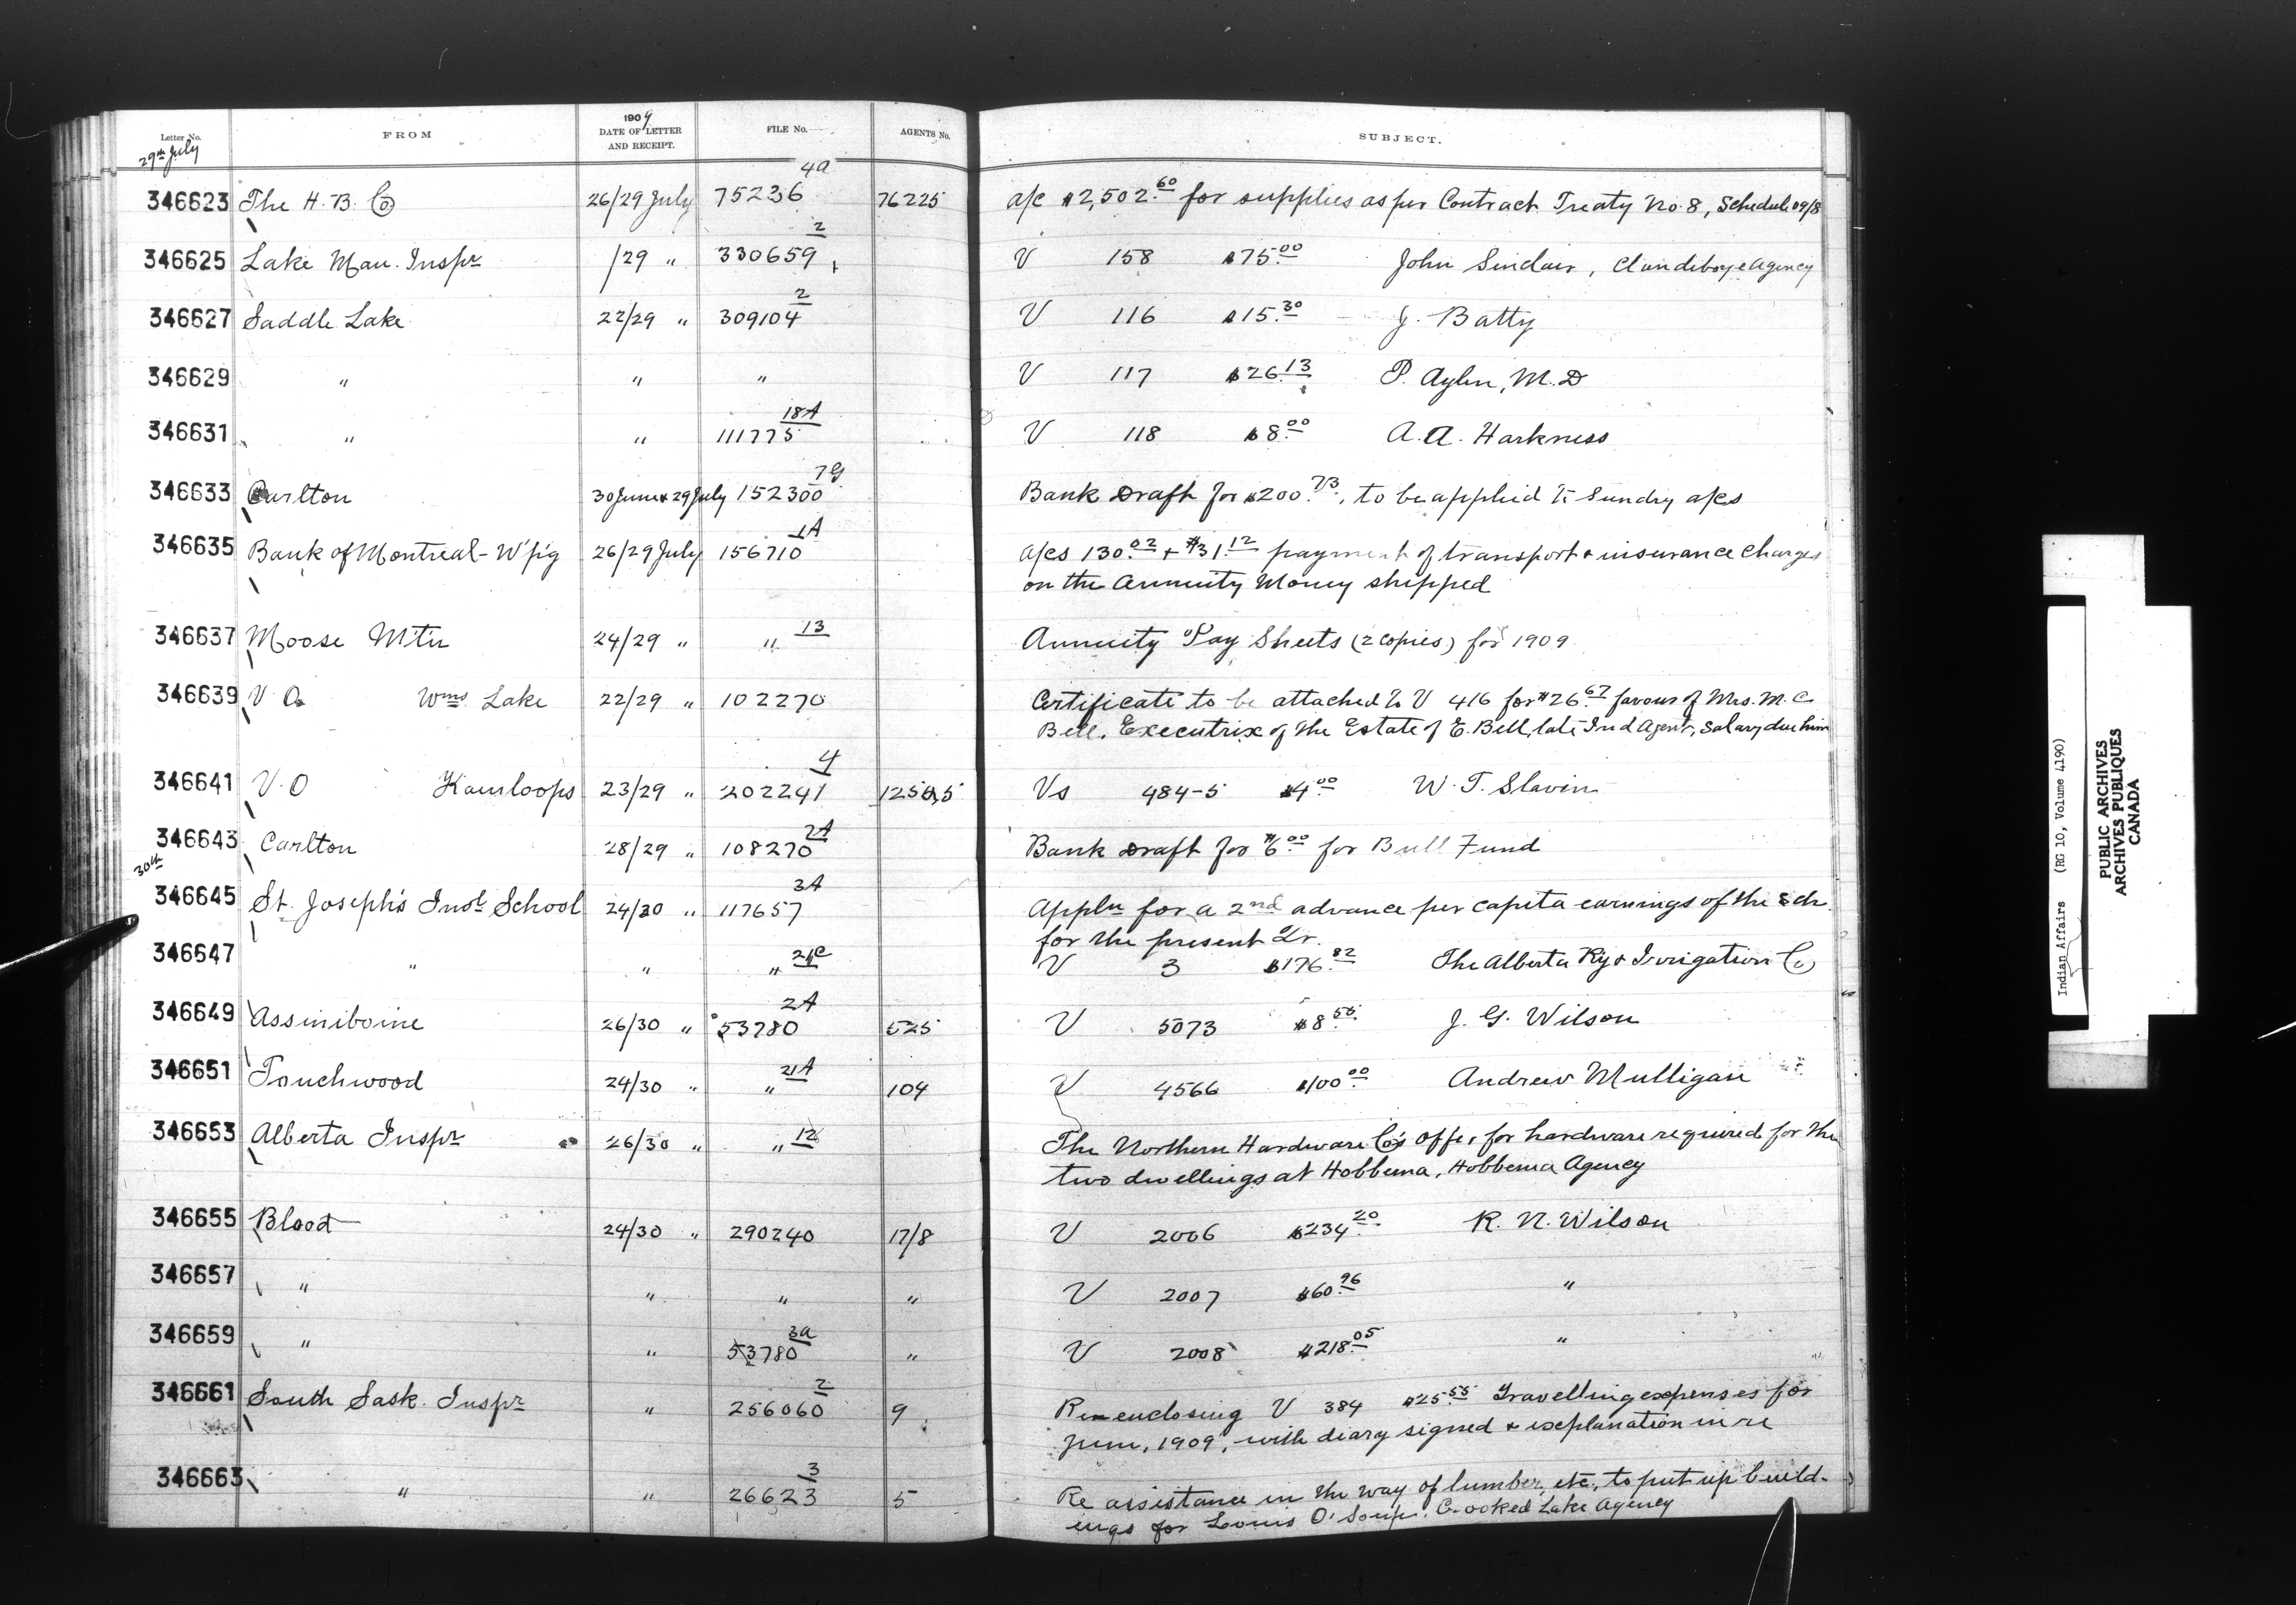 Letter No. FROM 1909 DATE OF LETTER AND RECEIPT. FILE No. AGENTS No. SUBJECT.
29th July
346623 The H. B. Co 26/29 July 75236 4a 76225 a/c $2,502.60 for supplies as per Contract Treaty No. 8, Schedule 09/8
346625 Lake Man. Inspr /29 " 330659 2 V 158 $75.00 John Sinclair, Clandeboye Agency
346627 Saddle Lake 22/29 " 309104 2 V 116 $15.30 J. Batty
346629 " " " V 117 $26.13 P. Aylen, M.D
346631 " " 111775 18A V 118 $8.00 A. A. Harkness
346633 Carlton 30 June & 29 July 152300 7G Bank Draft for $200.73, to be applied to Sundry a/cs
346635 Bank of Montreal - W'p'g 26/29 July 156710 1A a/cs 130.02 + $31.12 payment of transport & insurance charges
on the Annuity Money shipped
346637 Moose Mtn 24/29 " " 13 Annuity Pay Sheets (2 copies) for 1909
346639 V O. Wms Lake 22/29 " 102270 Certificate to be attached to V 416 for $26.67 favour of Mrs. M. C
Bell, Executrix of the Estate of E. Bell, late Ind Agent, Salary due him
346641 V. O Kamloops 23/29 " 202241 4 Vs 484-5 $4.00 W. T. Slavin
346643 Carlton 28/29 " 108270 2A Bank Draft for $6.00 for Bull Fund
30th
346645 St. Joseph's Inst School 24/30 " 117657 3A Appln for a 2nd advance per capita earnings of the Sch.
for the present Qr.
346647 " " " 21C V 3 $176.82 The Alberta Ry & Irrigation Co
346649 Assiniboine 26/30 " 53780 2A 525 V 5073 $8.55 J. G. Wilson
346651 Touchwood 24/30 " " 21A 104 V 4566 $100.00 Andrew Mulligan
346653 Alberta Inspr 26/30 " " 12 The Northern Hardware Co's offer for hardware required for the
two dwellings at Hobbema, Hobbema Agency
346655 Blood 24/30 " 290240 17/8 V 2006 $234.20 R. N. Wilson
346657 " " " " V 2007 $60.96 "
346659 " " 53780 3a " V 2008 $218.05 "
346661 South Sask. Inspr " 256060 2 9 Re enclosing V 384 $25.55 Travelling expenses for
June, 1909, with diary signed & explanation in re
346663 " " 26623 3 5 Re assistance in the way of lumber, etc., to put up build-
ings for Louis O'Soup. Crooked Lake Agency
Indian Affairs (RG 10, Volume 4190)
PUBLIC ARCHIVES
ARCHIVES PUBLIQUES
CANADA